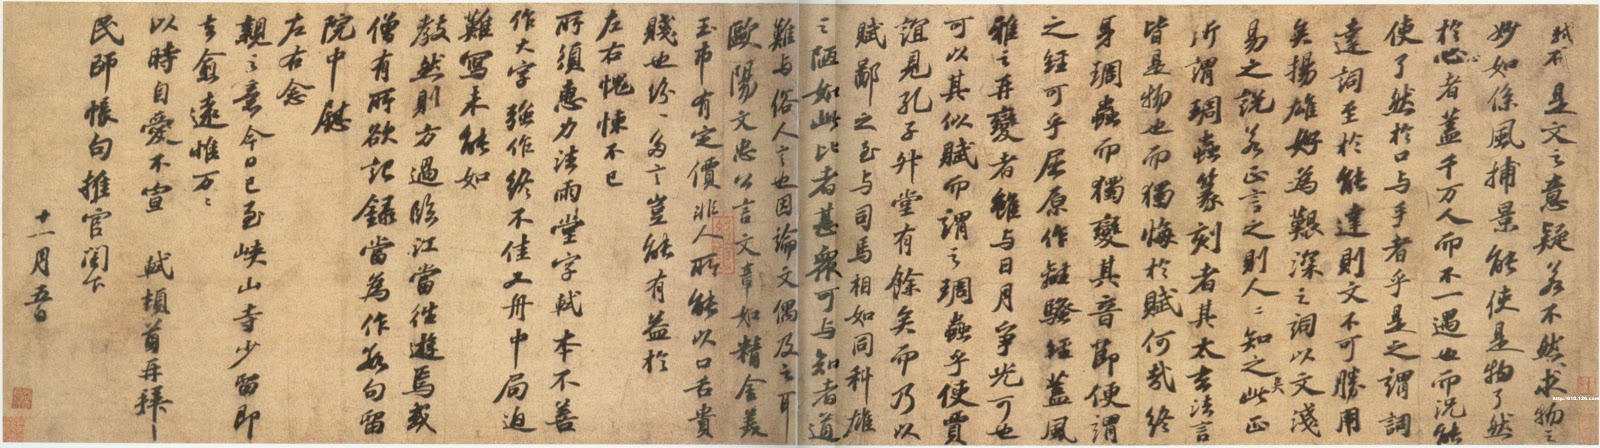 軾不 是文之意疑若不然求物之
妙如係風捕景能使是物了然
於心者蓋千万人而不一遇也而況能
使了然於口与手者乎是之謂詞
達詞至於能達則文不可勝用
矣揚雄好為艱深之詞以文淺
易之說若正言之則人〻知之矣此正
所謂琱蟲篆刻者其太玄法言
皆是物也而獨悔於賦何哉終
身琱蟲而獨變其音節便謂
之經可乎屈原作離騷經蓋風
雅之再變者雖与日月爭光可也
可以其似賦而謂之琱蟲乎使賈
誼見孔子升堂有餘矣而乃以
賦鄙之至与司馬相如同科雄
之陋如此比者甚眾可与知者道
難与俗人言也因論文偶及之耳
歐陽文忠公言文章如精金美
玉市有定價非人所能以口舌貴
賤也紛〻多言豈能有益於
左右愧悚不已
所須惠力法雨堂字軾本不善
作大字強作終不佳又舟中局迫
難寫未能如
教然則方過臨江當往遊焉或
僧有所欲記錄當為作數句留
院中慰
左右念
親之意今日已至峽山寺少留即
去愈遠惟万〻
以時自愛不宣 軾頓首再拜
民師帳句推官閤下
十一月五日
http://610.126.com